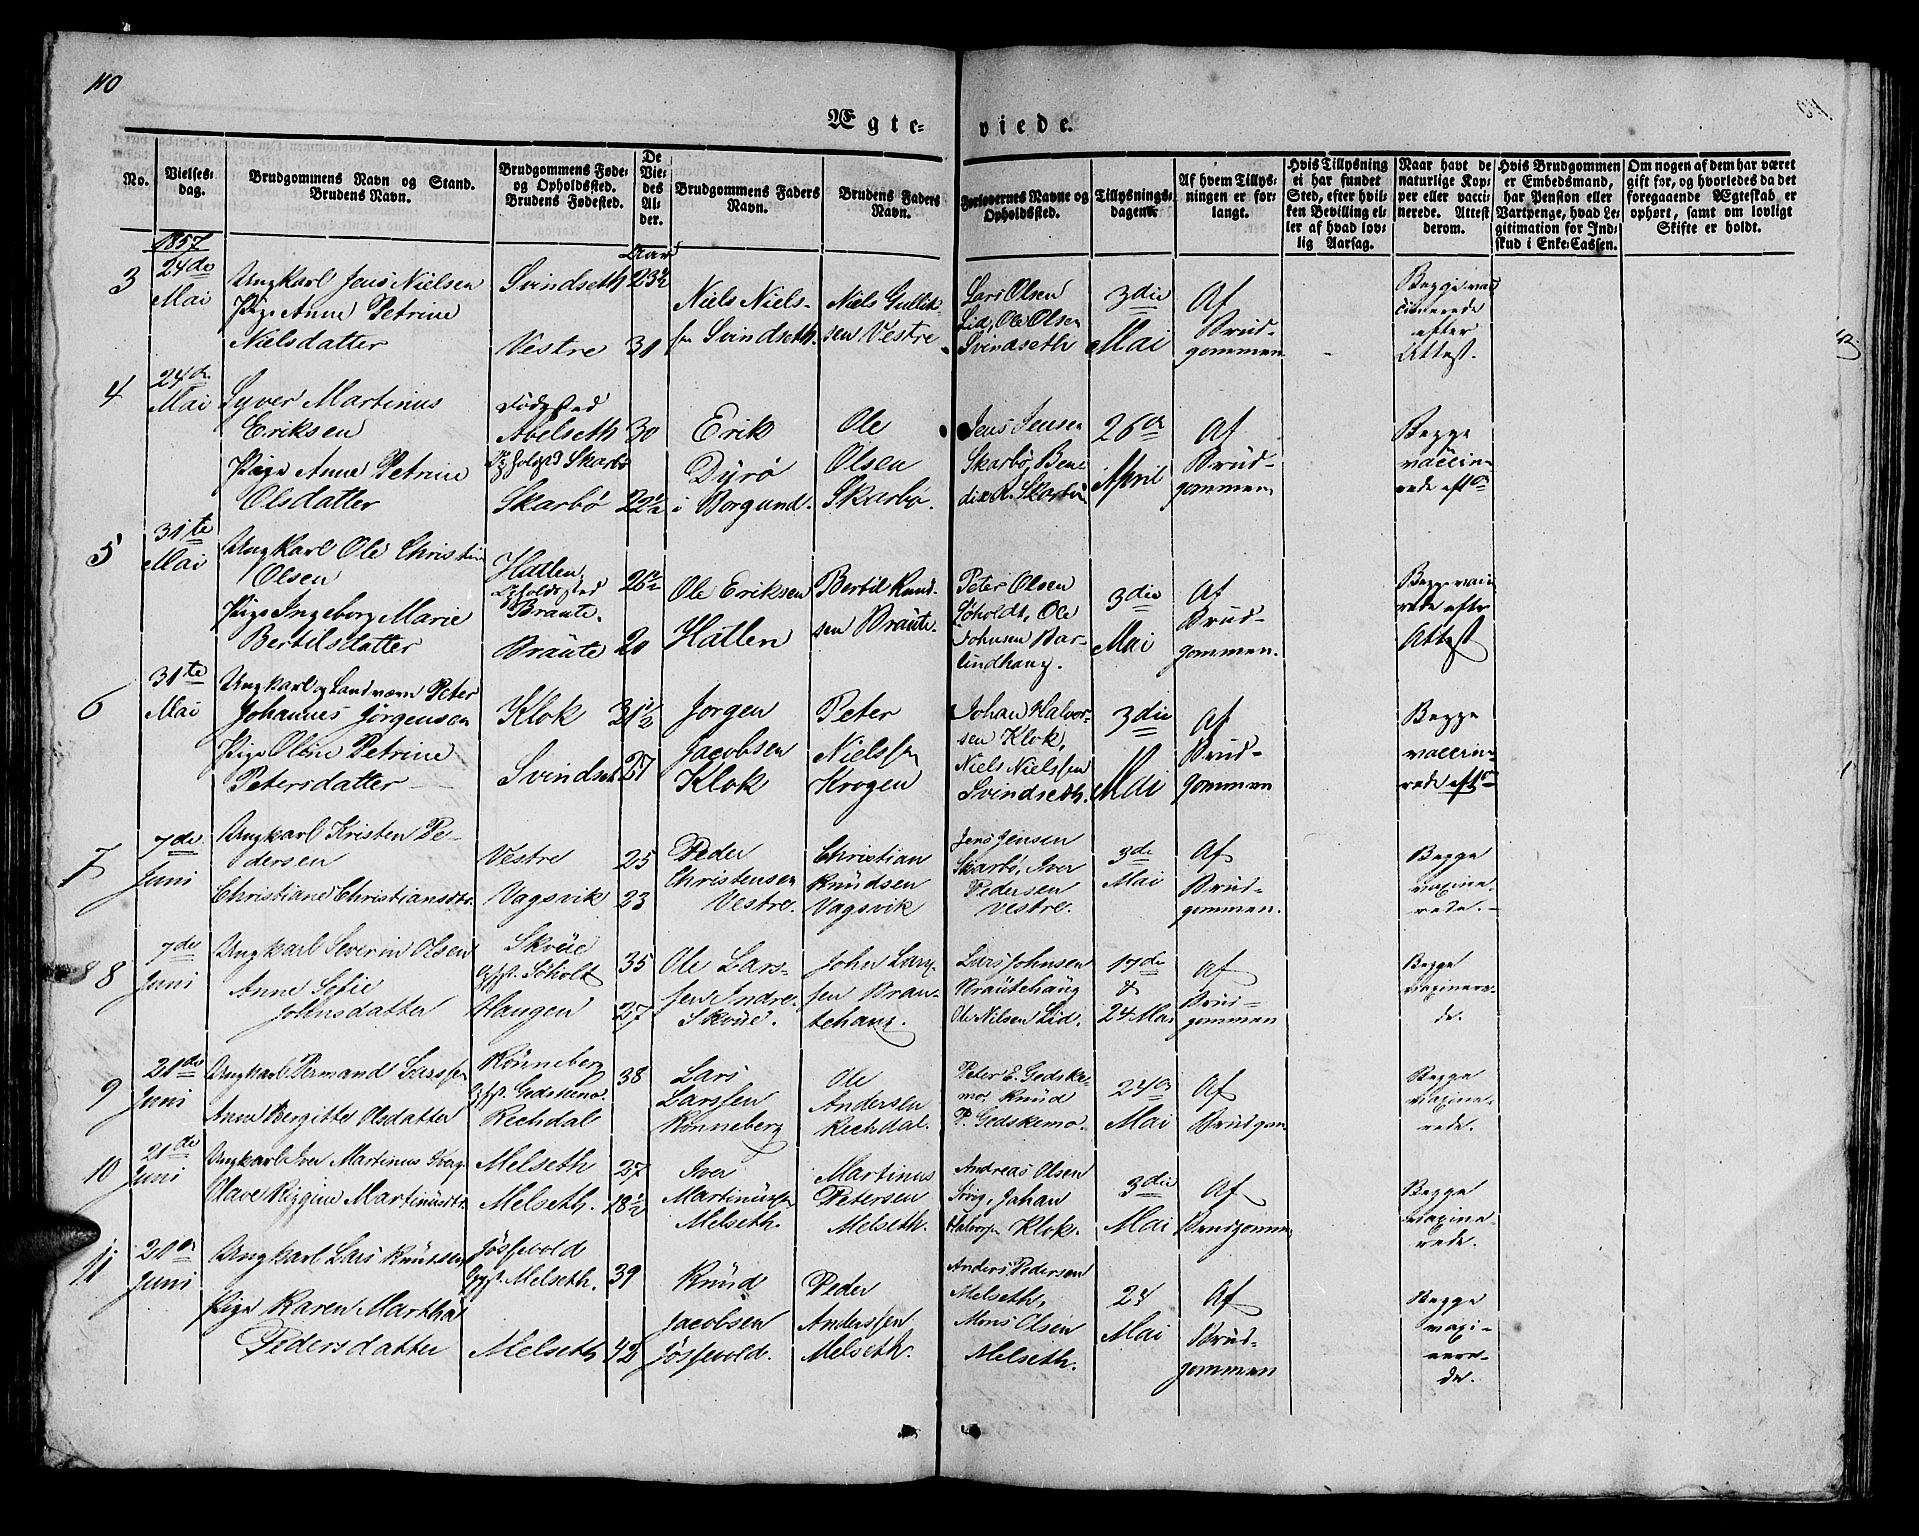 110
Ægte-viede.
No.
Vielses-dag.
Brudgommens Navn og Stand.
Brudens Navn.
Brudgommens Føde- og Opholdssted.
Brudens Fødested.
De Viedes Alder.
Brudgommens Faders Navn.
Brudens Faders Navn.
Forlovernes Navne og Opholdssted.
Tillysnings-dagene.
Af hvem Tillysningen er forlangt.
Hvis Tillysning ei har fundet Sted, efter hvilken Bevilling eller af hvad lovlig Aarsag.
Naar havt de naturlige Kopper eller vaccinerede. Attest derom.
Hvis Brudgommen er Embedsmand, har Pension eller Vartpenge, hvad Legitimation for Indskud i Enke-Cassen.
Om nogen af dem har været gift før, og hvorledes da det foregaaende Ægteskab er ophørt, samt om lovligt Skifte er holdt.
1857
3
24de Mai
Ungkarl Jens Nielsen
Pige Anne Petrine
Nielsdatter
Svindseth
Vestre
23½
31
Niels Niels-
sen Svindseth.
Niels Gullik-
sen Vestre
Lars Olsen
Lid, Ole Olsen
Svindseth
3die
Mai
Af
Brud-
gommen
Begge vac
cinerede
efter
Attest.
4
24de
Mai
Syver Martinus
Eriksen
Pige Anne Petrine
Olsdatter
Fødested
Abelseth
Opholdsted Skarbø
Skarbø
30
22½
Erik
Dyrø
i Borgund.
Ole
Olsen
Skarbø.
Jens Jensen
Skarbø, Bene
dix R. Skarbø
26de
April
Af
Brud-
gommen
Begge
vaccin-
rede
5
31te
Mai
Ungkarl Ole Christian
Olsen
Pige Ingeborg Marie
Bertilsdatter
Hatlen
Opholdssted
Braute.
Braute
26½
20
Ole Eriksen
Hatlen
Bertil Knud-
sen Braute.
Peter Olsen
Søholdt, Ole
Johnsen Bar-
lindhaug.
3die
Mai
Af
Brud-
gommen.
Begge vacine
rede efter
Attest
6
31te
Mai
Ungkarl og Landværn Peter
Johannes Jørgensen
Pige Oline Petrine
Petersdatter
Klok
Svindset
31½
27
Jørgen
Jacobsen
Klok
Peter
Nielssen
Krogen
Johan Halvor-
sen Klok,
Niels Nielssen
Svindseth.
3die
Mai
Af
Brud-
gommen
Begge
vaccin-
rede
7
7de
Juni
Ungkarl Kristen Pe-
dersen
Christiane Christiansdtr.
Vestre
Vagsvik
25
23
Peder
Christensen
Vestre.
Christian
Knudsen
Vagsvik
Jens Jensen
Skarbø, Iver
Pedersen
Vestre.
3de
Mai
Af
Brud-
gommen.
Begge
vaxine-
rede.
8
7de
Juni
Ungkarl Severin Olsen
Anne Sofie
Johnsdatter
Skvüe
Søholt
Haugen
35
27
Ole Lars-
sen Indre
Skvüe.
John Lars-
sen Brau-
tehaug.
Lars Johnsen
Brautehaug
Ole Nilsen Lid.
17de
&
24 Mai
Af
Brud-
gommen
Begge
vaxinere-
de.
9
21de
Juni
Ungkarl Permand Larssen
Anne Bergitte Olsdatter
Rønneberg
Rechdal
38
Lars
Larssen
Rønneberg
Ole
Andersen
Rechdal.
Peter E. Gedske-
mo, Knud
P. Gedskemo.
24de
Mai
Af
Brudgom
Begge
vaxine-
rede.
10
21de
Juni
Ungkarl Iver Martinus
Olave Regine Martinusdtr.
Melseth
Melseth.
27
18½
Iver
Martinüssen
Melseth.
Martinus
Petersen
Melseth.
Andreas Olsen
Johan
Klok.
3die
Mai
Af
Brudgommen
Begge
vaxine-
rede.
11
Juni
Ungkarl Lars Knutsen
Pige Karen Martha
Pedersdatter
Jøssevold
Melseth.
Melseth
39
42
Knud
Jacobsen
Jøssevold.
Peder
Anderssen
Melseth.
Anders Pedersen
Melseth,
Mons Olsen
Melseth.
24
Mai
Af
Brud-
gommen
Begge
vaxi-
nere-
de.